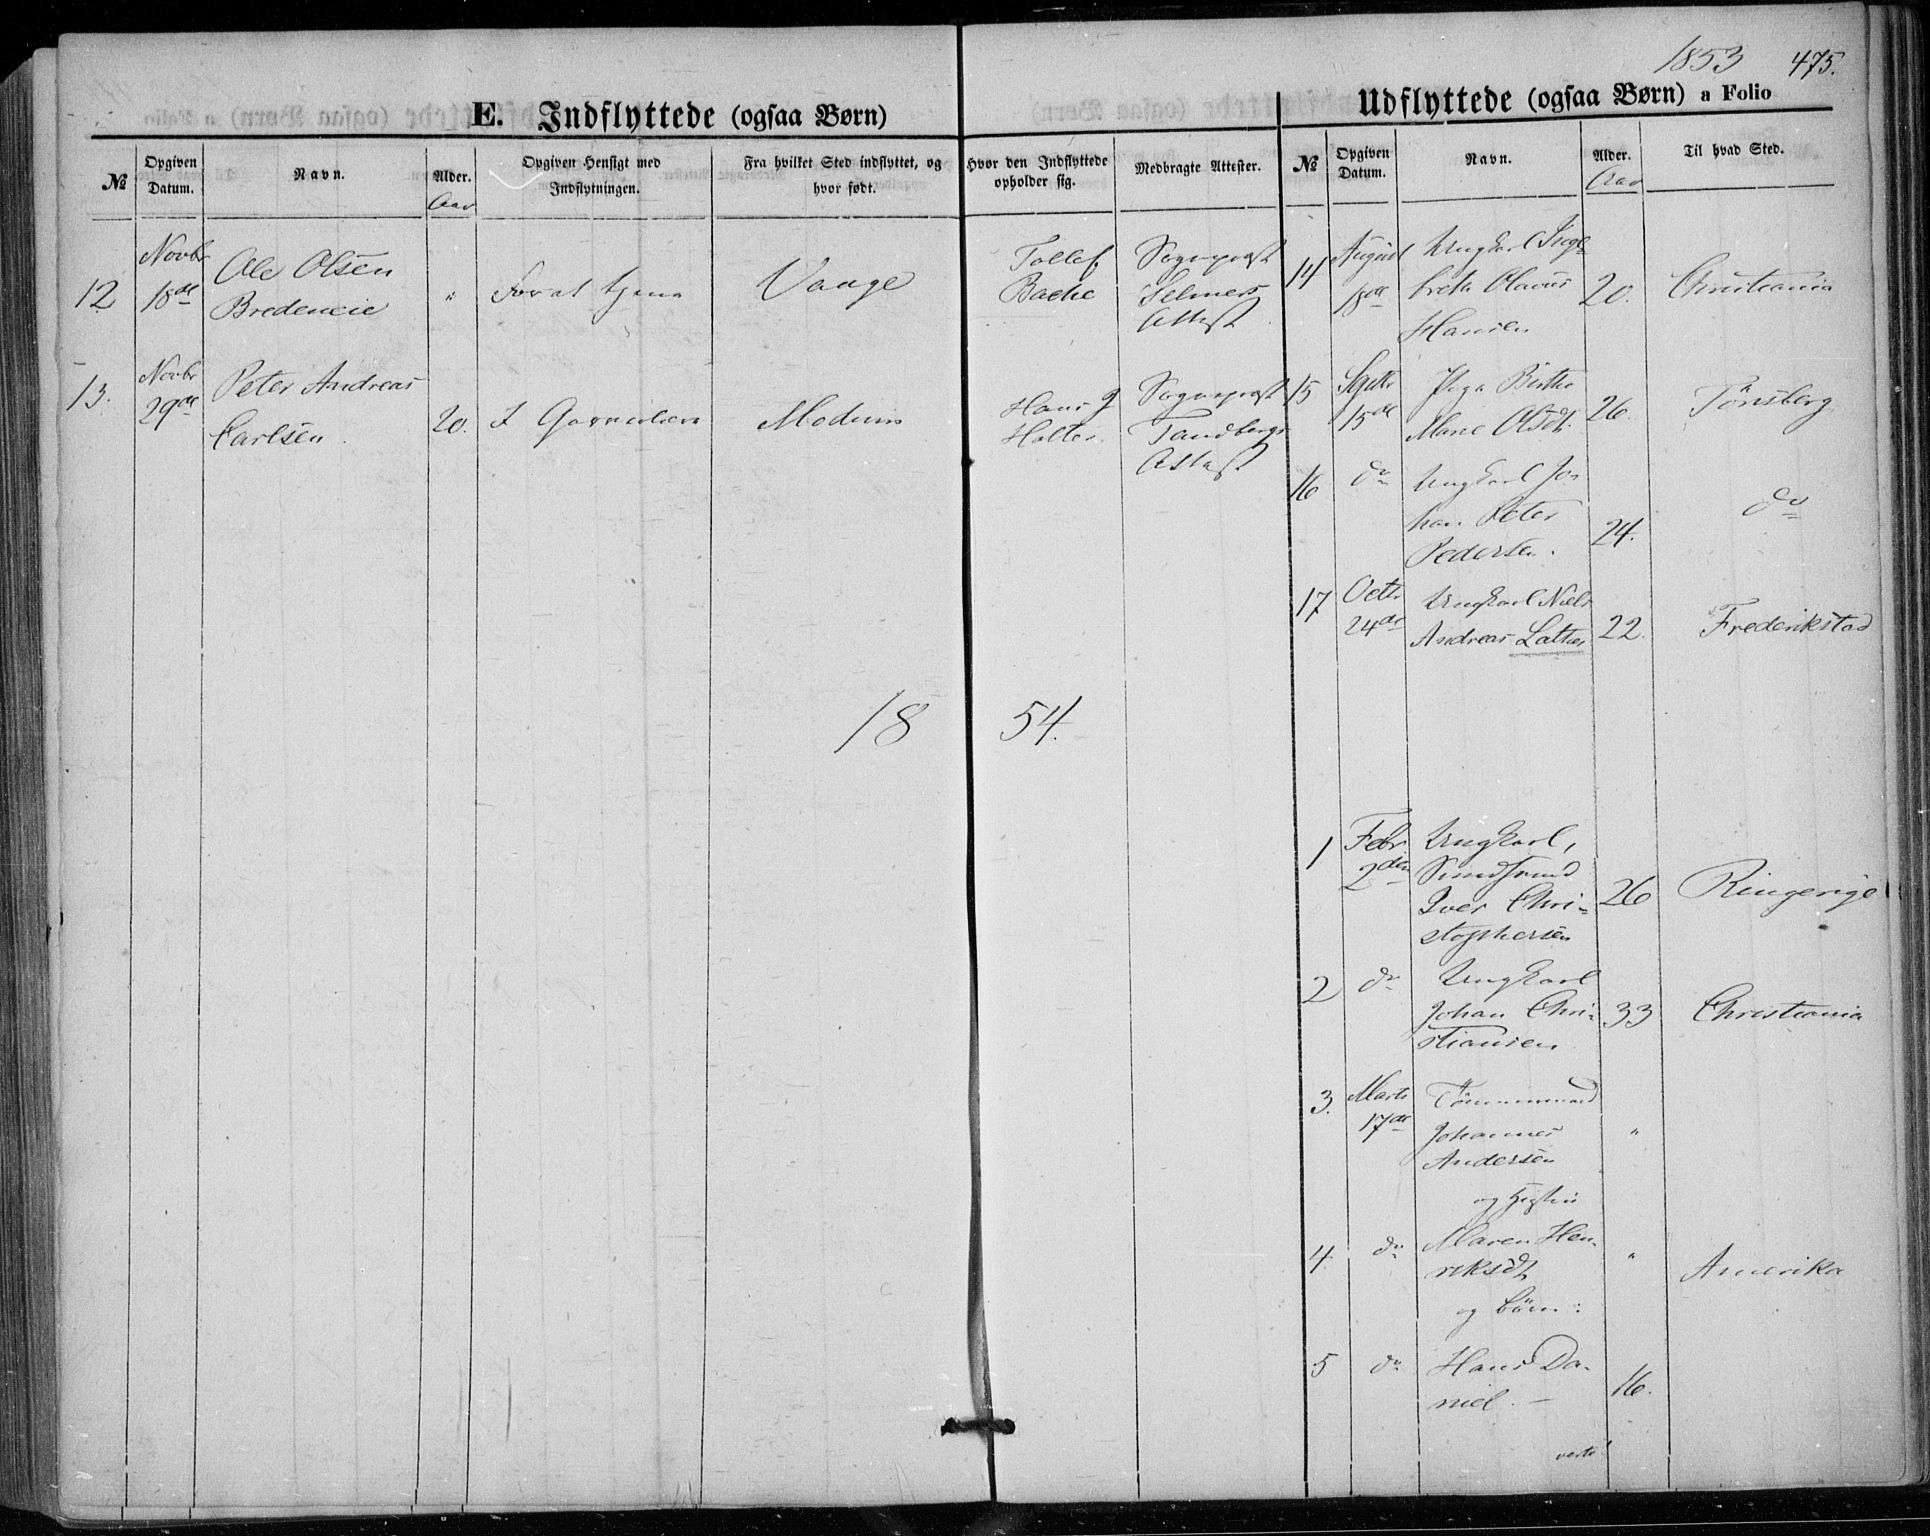 1853 475.
E. Indflyttede (ogsaa Børn)
№
Opgiven Datum.
Navn.
Alder.
Aar
Opgiven Hensigt med Indflytningen.
Fra hvilket Sted indflyttet, og hvor født.
Hvor den Indflyttede opholder sig.
Medbragte Attester.
12
Novbr
18de
Ole Olsen
"
For at tjene
Vaage
Tollef
Bache
Sogneprest
Selmers
Attest
13.
Novbr
29de
Peter Andreas
Carlsen
20.
I Garverlære
Modum
Hans J
Holter.
Sogneprest
Tandbergs
Attest
18 54.
Udflyttede (ogsaa Børn) a Folio
№
Opgiven Datum.
Navn.
Alder.
Aar
Til hvad Sted.
14
August
18de
Ungkarl
Olavus
Hansen
20.
Christiania
15
Septbr
15de
Pige Birthe
Marie Olsdt.
26.
Tönsberg
16
do
Ungkarl Jo-
han Peter
Pedersen.
24.
do
17
Octbr
24de
Ungkarl Niels
Andreas
22.
Frederikstad
1
Febr
2den
Ungkarl,
Iver Chri-
stophersen
26
Ringerige
2
do
Ungkarl
Johan Chri-
stiansen
33
Christiania
3.
Marts
17de
Tömmermand
Johannes
Andersen
"
og Hustru
4.
do
Maren Hen-
riksdt
"
Amerika
og börn:
5
do
Hans Da-
niel. —
16.
verte!